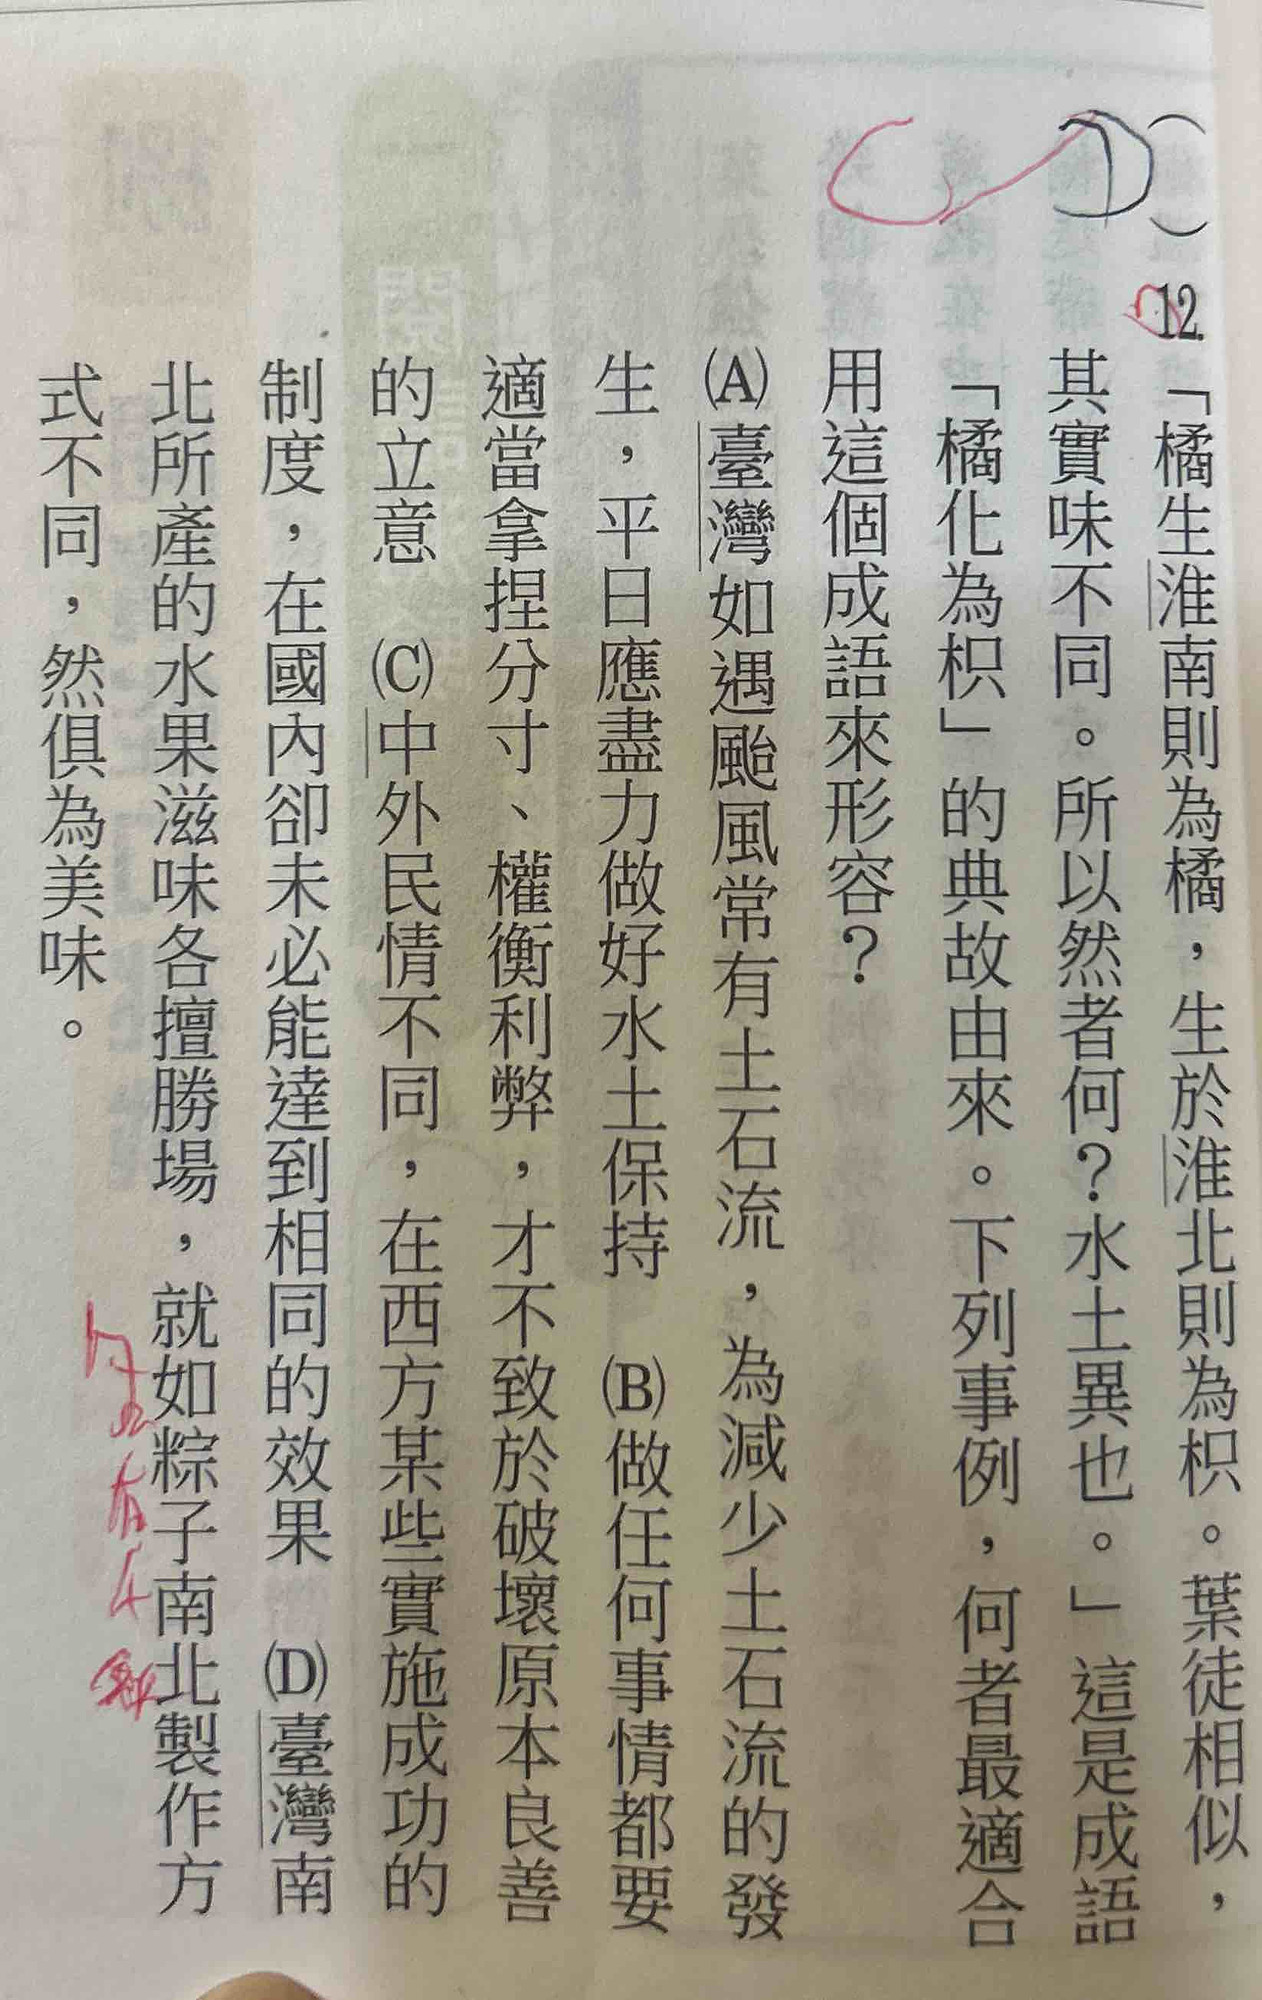 （D）12.「橘生淮南則為橘，生於淮北則為枳。葉徒相似，
其實味不同。所以然者何？水土異也。」這是成語
「橘化為枳」的典故由來。下列事例，何者最適合
用這個成語來形容？
(A)臺灣如遇颱風常有土石流，為減少土石流的發
生，平日應盡力做好水土保持　(B)做任何事情都要
適當拿捏分寸、權衡利弊，才不致於破壞原本良善
的立意　(C)中外民情不同，在西方某些實施成功的
制度，在國內卻未必能達到相同的效果　(D)臺灣南
北所產的水果滋味各擅勝場，就如粽子南北製作方
式不同，然俱為美味。
C